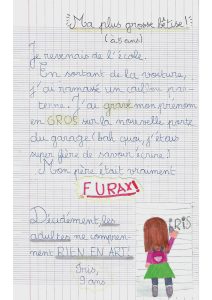 Ma plus grosse bêtise !
(à 5 ans)
Je revenais de l'école.
En sortant de la voiture,
j'ai ramassé un caillou par
terre. J'ai gravé mon prénom
en GROS sur la nouvelle porte
du garage ! bah quoi, j'étais
super fière de savoir écrire !
Mon père était vraiment
FURAX !
Décidément les
adultes ne compren-
nent RIEN EN ART !
Iris,
9 ans
IRIS